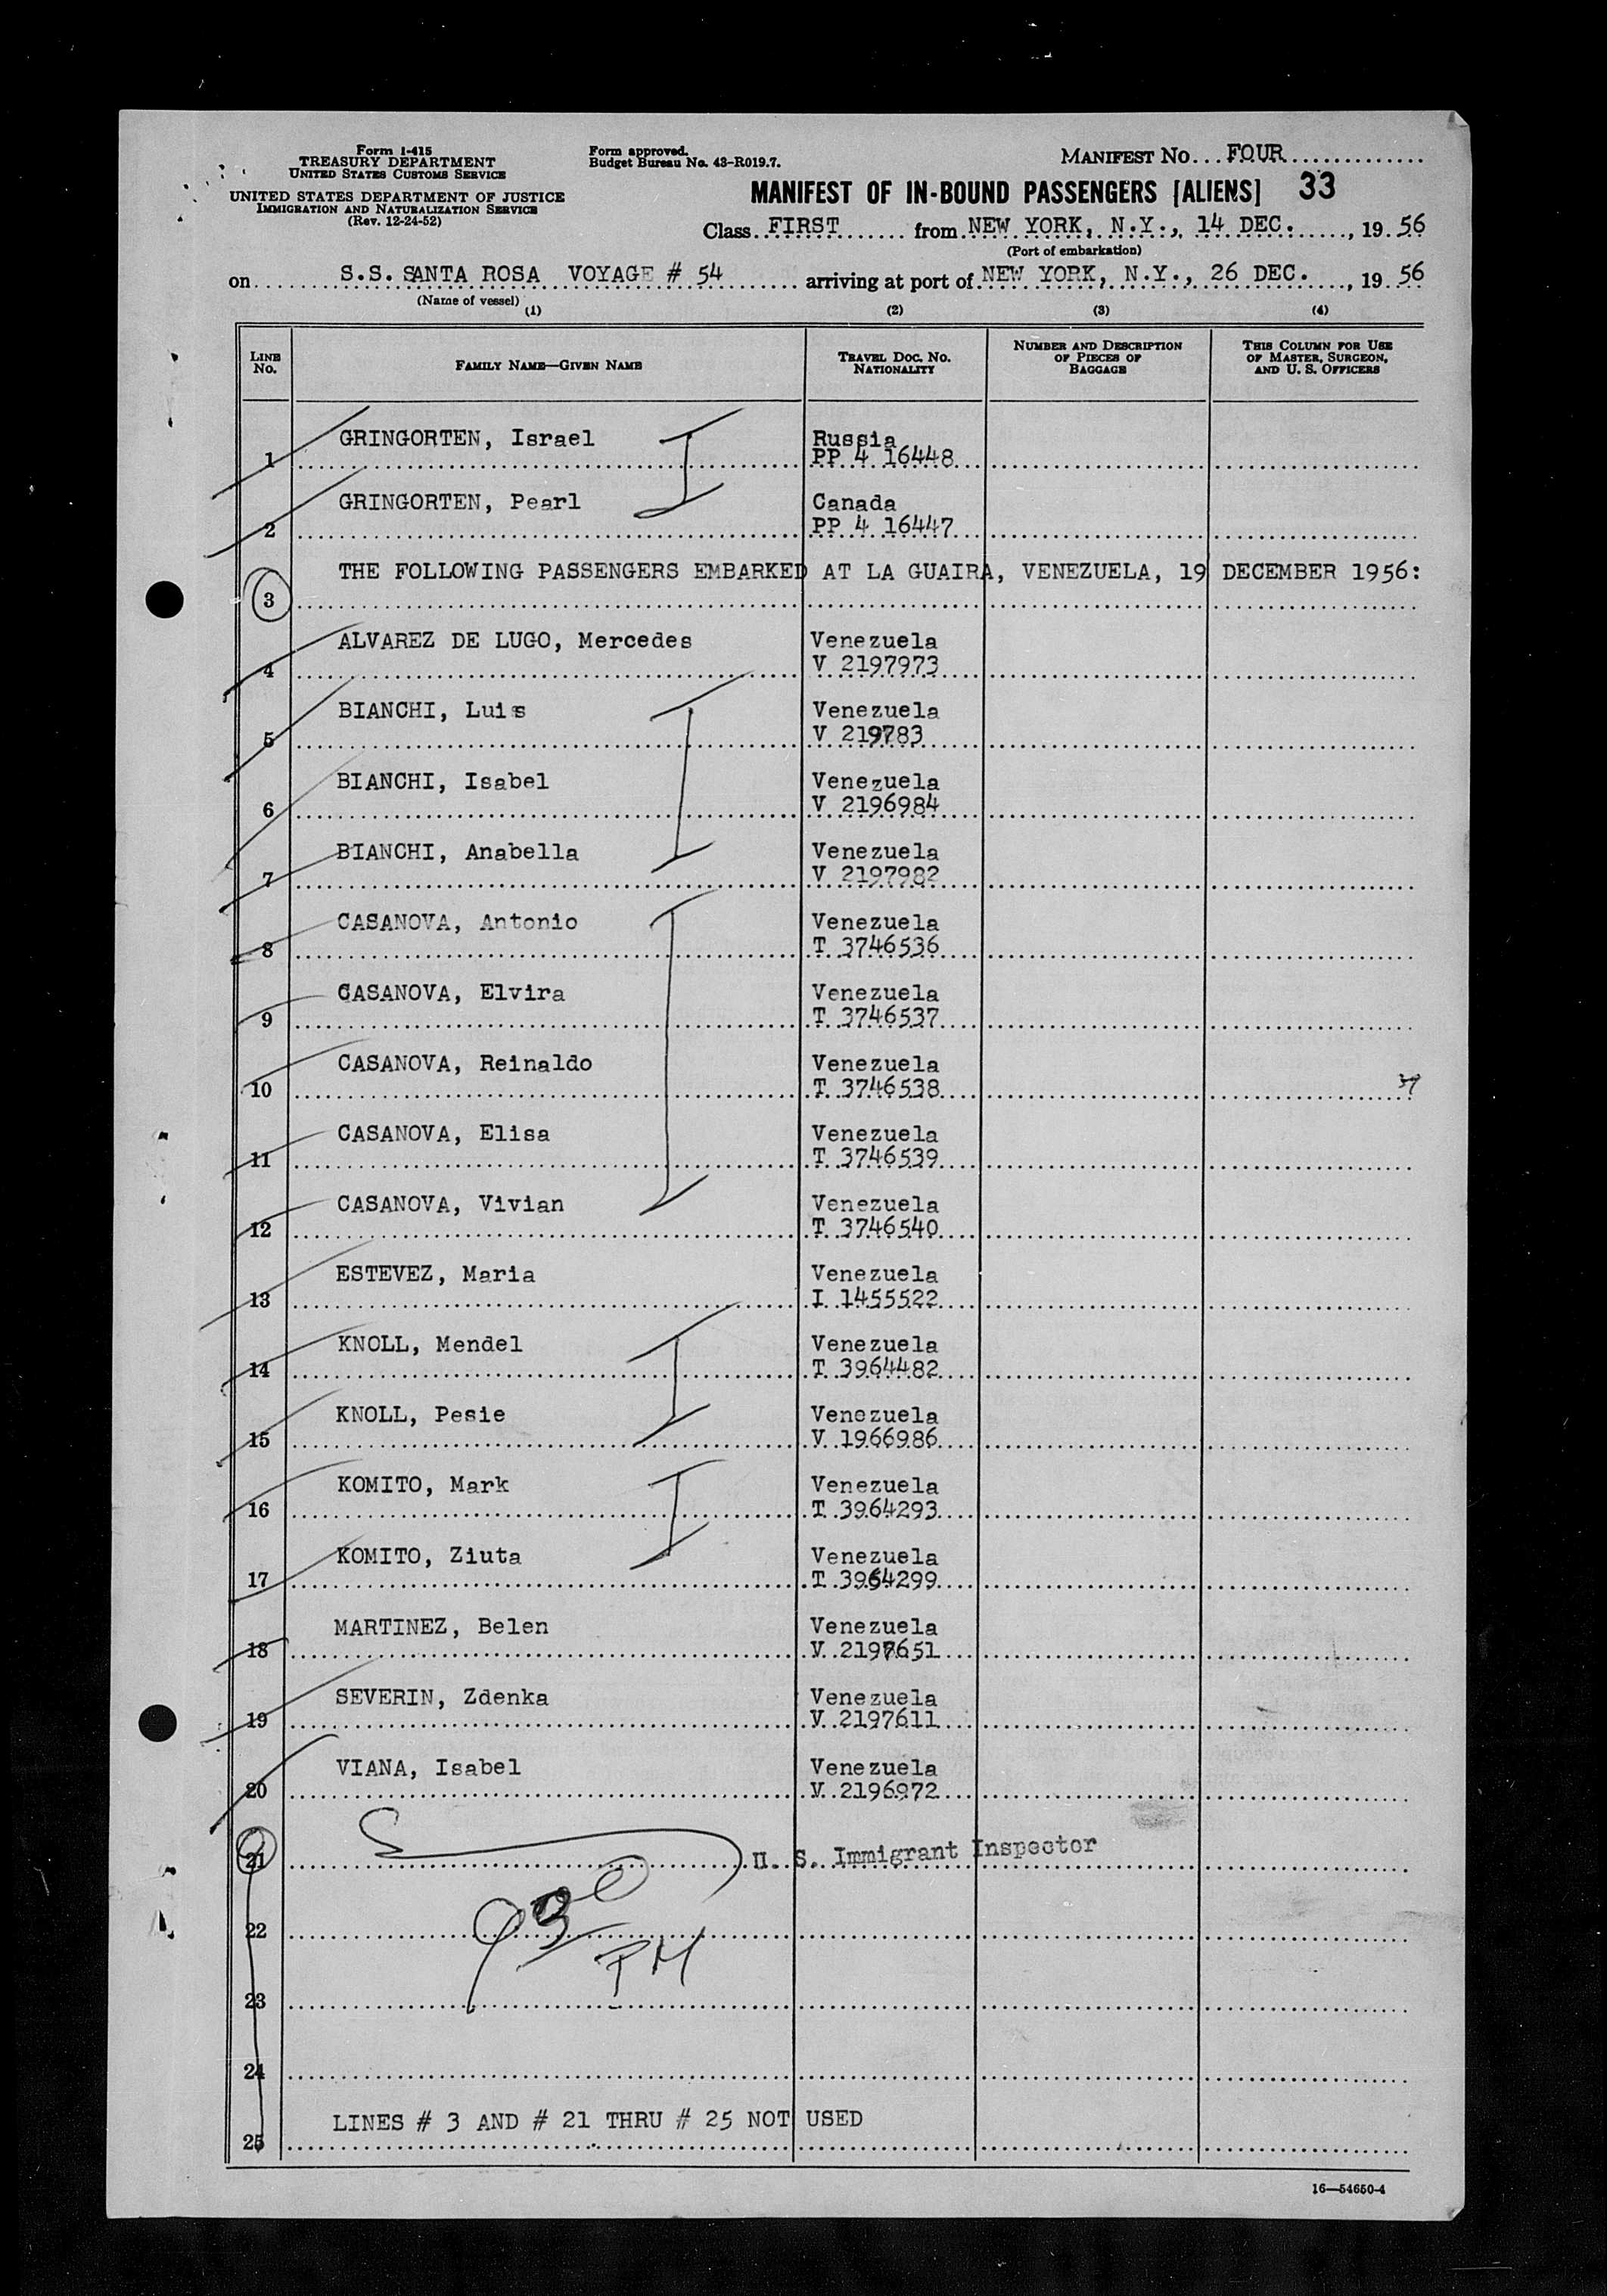 Form I-415
TREASURY DEPARTMENT
UNITED STATES CUSTOMS SERVICE
UNITED STATES DEPARTMENT OF JUSTICE
IMMIGRATION AND NATURALIZATION SERVICE
(Rev. 12-24-52)
Form approved.
Budget Bureau No. 43-R019.7.
MANIFEST NO. FOUR
MANIFEST OF IN-BOUND PASSENGERS [ALIENS] 33
Class FIRST from NEW YORK, N.Y., 14 DEC., 19 56
(Port of embarkation)
on S.S. SANTA ROSA VOYAGE # 54 arriving at port of NEW YORK, N.Y., 26 DEC., 19 56
(Name of vessel)
(1) (2) (3) (4)
LINE NO.
FAMILY NAME—GIVEN NAME
TRAVEL DOC. NO. NATIONALITY
NUMBER AND DESCRIPTION OF PIECES OF BAGGAGE
THIS COLUMN FOR USE OF MASTER, SURGEON, AND U. S. OFFICERS
GRINGORTEN, Israel Russia
1 PP 4 16448
GRINGORTEN, Pearl Canada
2 PP 4 16447
THE FOLLOWING PASSENGERS EMBARKED AT LA GUAIRA, VENEZUELA, 19 DECEMBER 1956:
3
ALVAREZ DE LUGO, Mercedes Venezuela
4 V 2197973
BIANCHI, Luis Venezuela
5 V 219783
BIANCHI, Isabel Venezuela
6 V 2196984
BIANCHI, Anabella Venezuela
7 V 2197982
CASANOVA, Antonio Venezuela
8 T 3746536
CASANOVA, Elvira Venezuela
9 T 3746537
CASANOVA, Reinaldo Venezuela
10 T 3746538
CASANOVA, Elisa Venezuela
11 T 3746539
CASANOVA, Vivian Venezuela
12 T 3746540
ESTEVEZ, Maria Venezuela
13 I 1455522
KNOLL, Mendel Venezuela
14 T 3964482
KNOLL, Pesie Venezuela
15 V 1966986
KOMITO, Mark Venezuela
16 T 3964293
KOMITO, Ziuta Venezuela
17 T 3964299
MARTINEZ, Belen Venezuela
18 V 2197651
SEVERIN, Zdenka Venezuela
19 V 2197611
VIANA, Isabel Venezuela
20 V 2196972
21 U. S. Immigrant Inspector
22 930
PM
23
24
LINES # 3 AND # 21 THRU # 25 NOT USED
25
16—54650-4